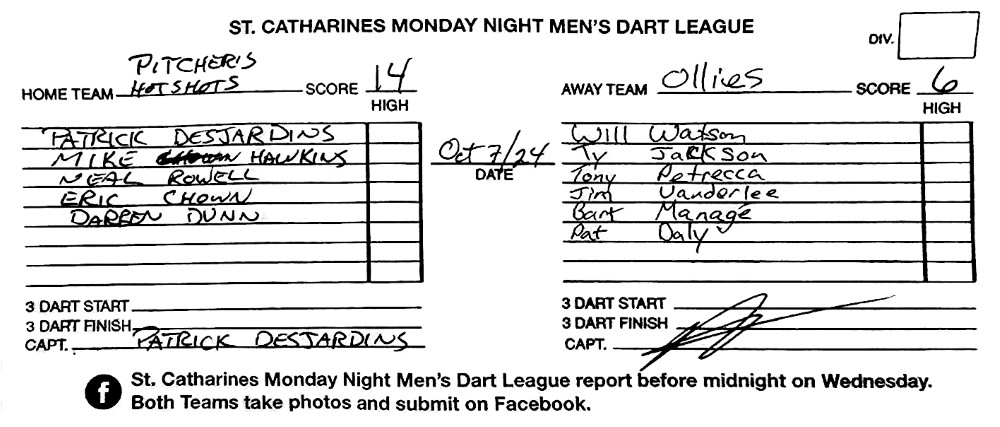 ST. CATHARINES MONDAY NIGHT MEN'S DART LEAGUE
DIV.
HOME TEAM PITCHER'S HOTSHOTS SCORE 14
HIGH
AWAY TEAM Ollies SCORE 6
HIGH
PATRICK DESJARDINS
MIKE HAWKINS
NEAL ROWELL
ERIC CHOWN
DARREN DUNN
Oct 7/24
DATE
Will Watson
Ty Jackson
Tony Petrecca
Jim Vanderlee
Bart Managé
Pat Daly
3 DART START
3 DART FINISH
CAPT. PATRICK DESJARDINS
3 DART START
3 DART FINISH
CAPT.
f St. Catharines Monday Night Men's Dart League report before midnight on Wednesday.
Both Teams take photos and submit on Facebook.